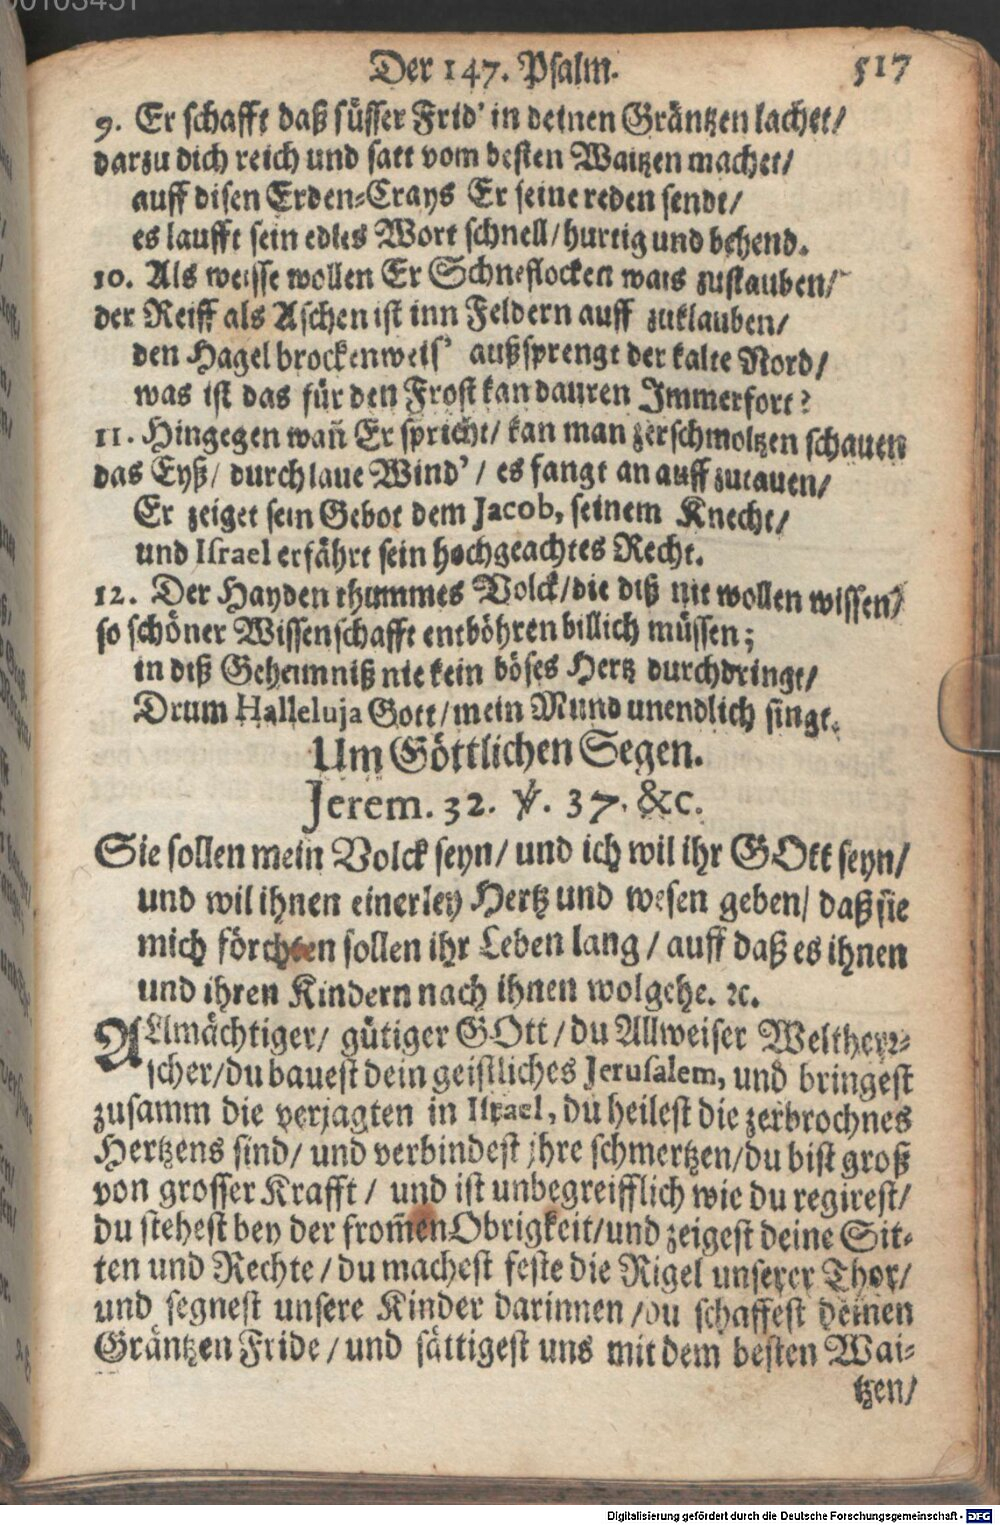 00103451
Der 147. Psalm. 517
9. Er schafft daß süsser Frid' in deinen Gräntzen lachet/
darzu dich reich und satt vom besten Waitzen machet/
auff disen Erden-Crays Er seine reden sendt/
es laufft sein edles Wort schnell/ hurtig und behend.
10. Als weisse wollen Er Schneflocken wais zustauben/
der Reiff als Aschen ist inn Feldern auff zuklauben/
den Hagel brockenweis' außsprengt der kalte Nord/
was ist das für den Frost kan dauren Immerfort?
11. Hingegen wañ Er spricht/ kan man zerschmoltzen schauen
das Eyß/ durch laue Wind'/ es fangt an auff zutauen/
Er zeiget sein Gebot dem Jacob, seinem Knecht/
und Israel erfährt sein hochgeachtes Recht.
12. Der Hayden thummes Volck/ die diß nit wollen wissen/
so schöner Wissenschafft entböhren billich müssen;
in diß Geheimniß nie kein böses Hertz durchdringt/
Drum Halleluja Gott/ mein Mund unendlich singt.
Um Göttlichen Segen.
Jerem. 32. ℣. 37. &c.
Sie sollen mein Volck seyn/ und ich wil ihr GOtt seyn/
und wil ihnen einerley Hertz und wesen geben/ daß sie
mich förchten sollen ihr Leben lang/ auff daß es ihnen
und ihren Kindern nach ihnen wolgehe. ꝛc.
ALlmächtiger/ gütiger GOtt/ du Allweiser Weltherꝛ-
scher/ du bauest dein geistliches Jerusalem, und bringest
zusamm die verjagten in Israel, du heilest die zerbrochnes
Hertzens sind/ und verbindest jhre schmertzen/ du bist groß
von grosser Krafft/ und ist unbegreifflich wie du regirest/
du stehest bey der from̃en Obrigkeit/ und zeigest deine Sit-
ten und Rechte/ du machest feste die Rigel unserer Thor/
und segnest unsere Kinder darinnen/ du schaffest deinen
Gräntzen Fride/ und sättigest uns mit dem besten Wai-
tzen/
Digitalisierung gefördert durch die Deutsche Forschungsgemeinschaft - DFG